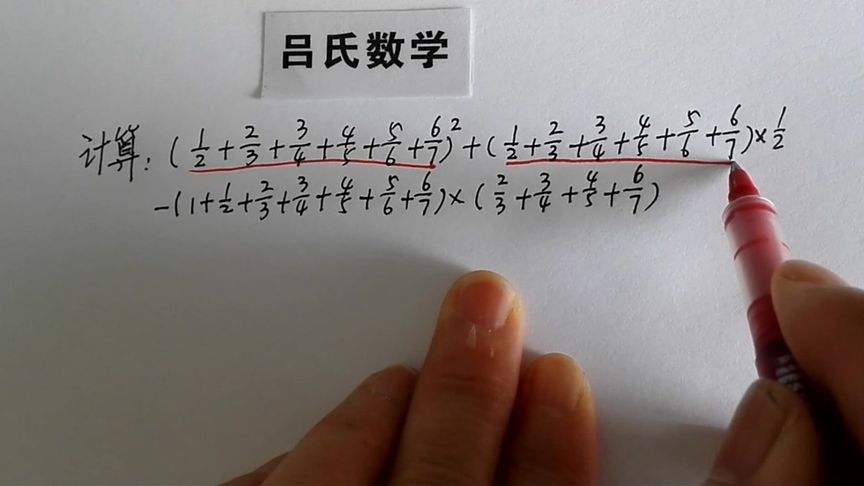 吕氏数学
计算: (1/2+2/3+3/4+4/5+5/6+6/7)²+(1/2+2/3+3/4+4/5+5/6+6/7)×1/2
-(1+1/2+2/3+3/4+4/5+5/6+6/7)×(2/3+3/4+4/5+6/7)